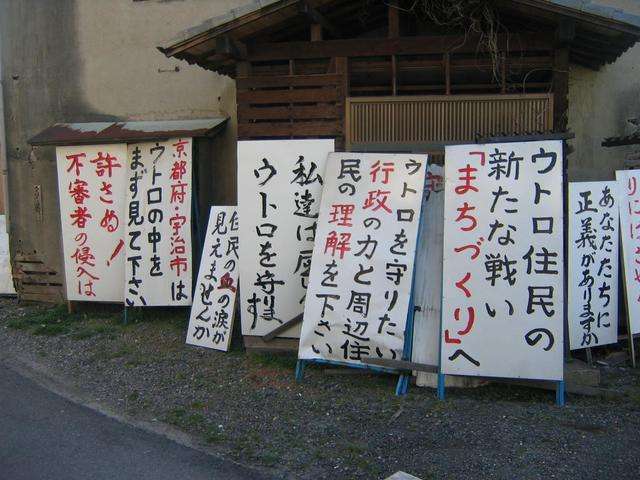 許さぬ！
不審者の侵入は
京都府・宇治市は
ウトロの中を
まず見て下さい
住民の血の涙が
見えませんか
私達は
ウトロを守ります
ウトロを守りたい
行政の力と周辺住
民の理解を下さい
ウトロ住民の
新たな戦い
「まちづくり」へ
あなたたちに
正義がありますか